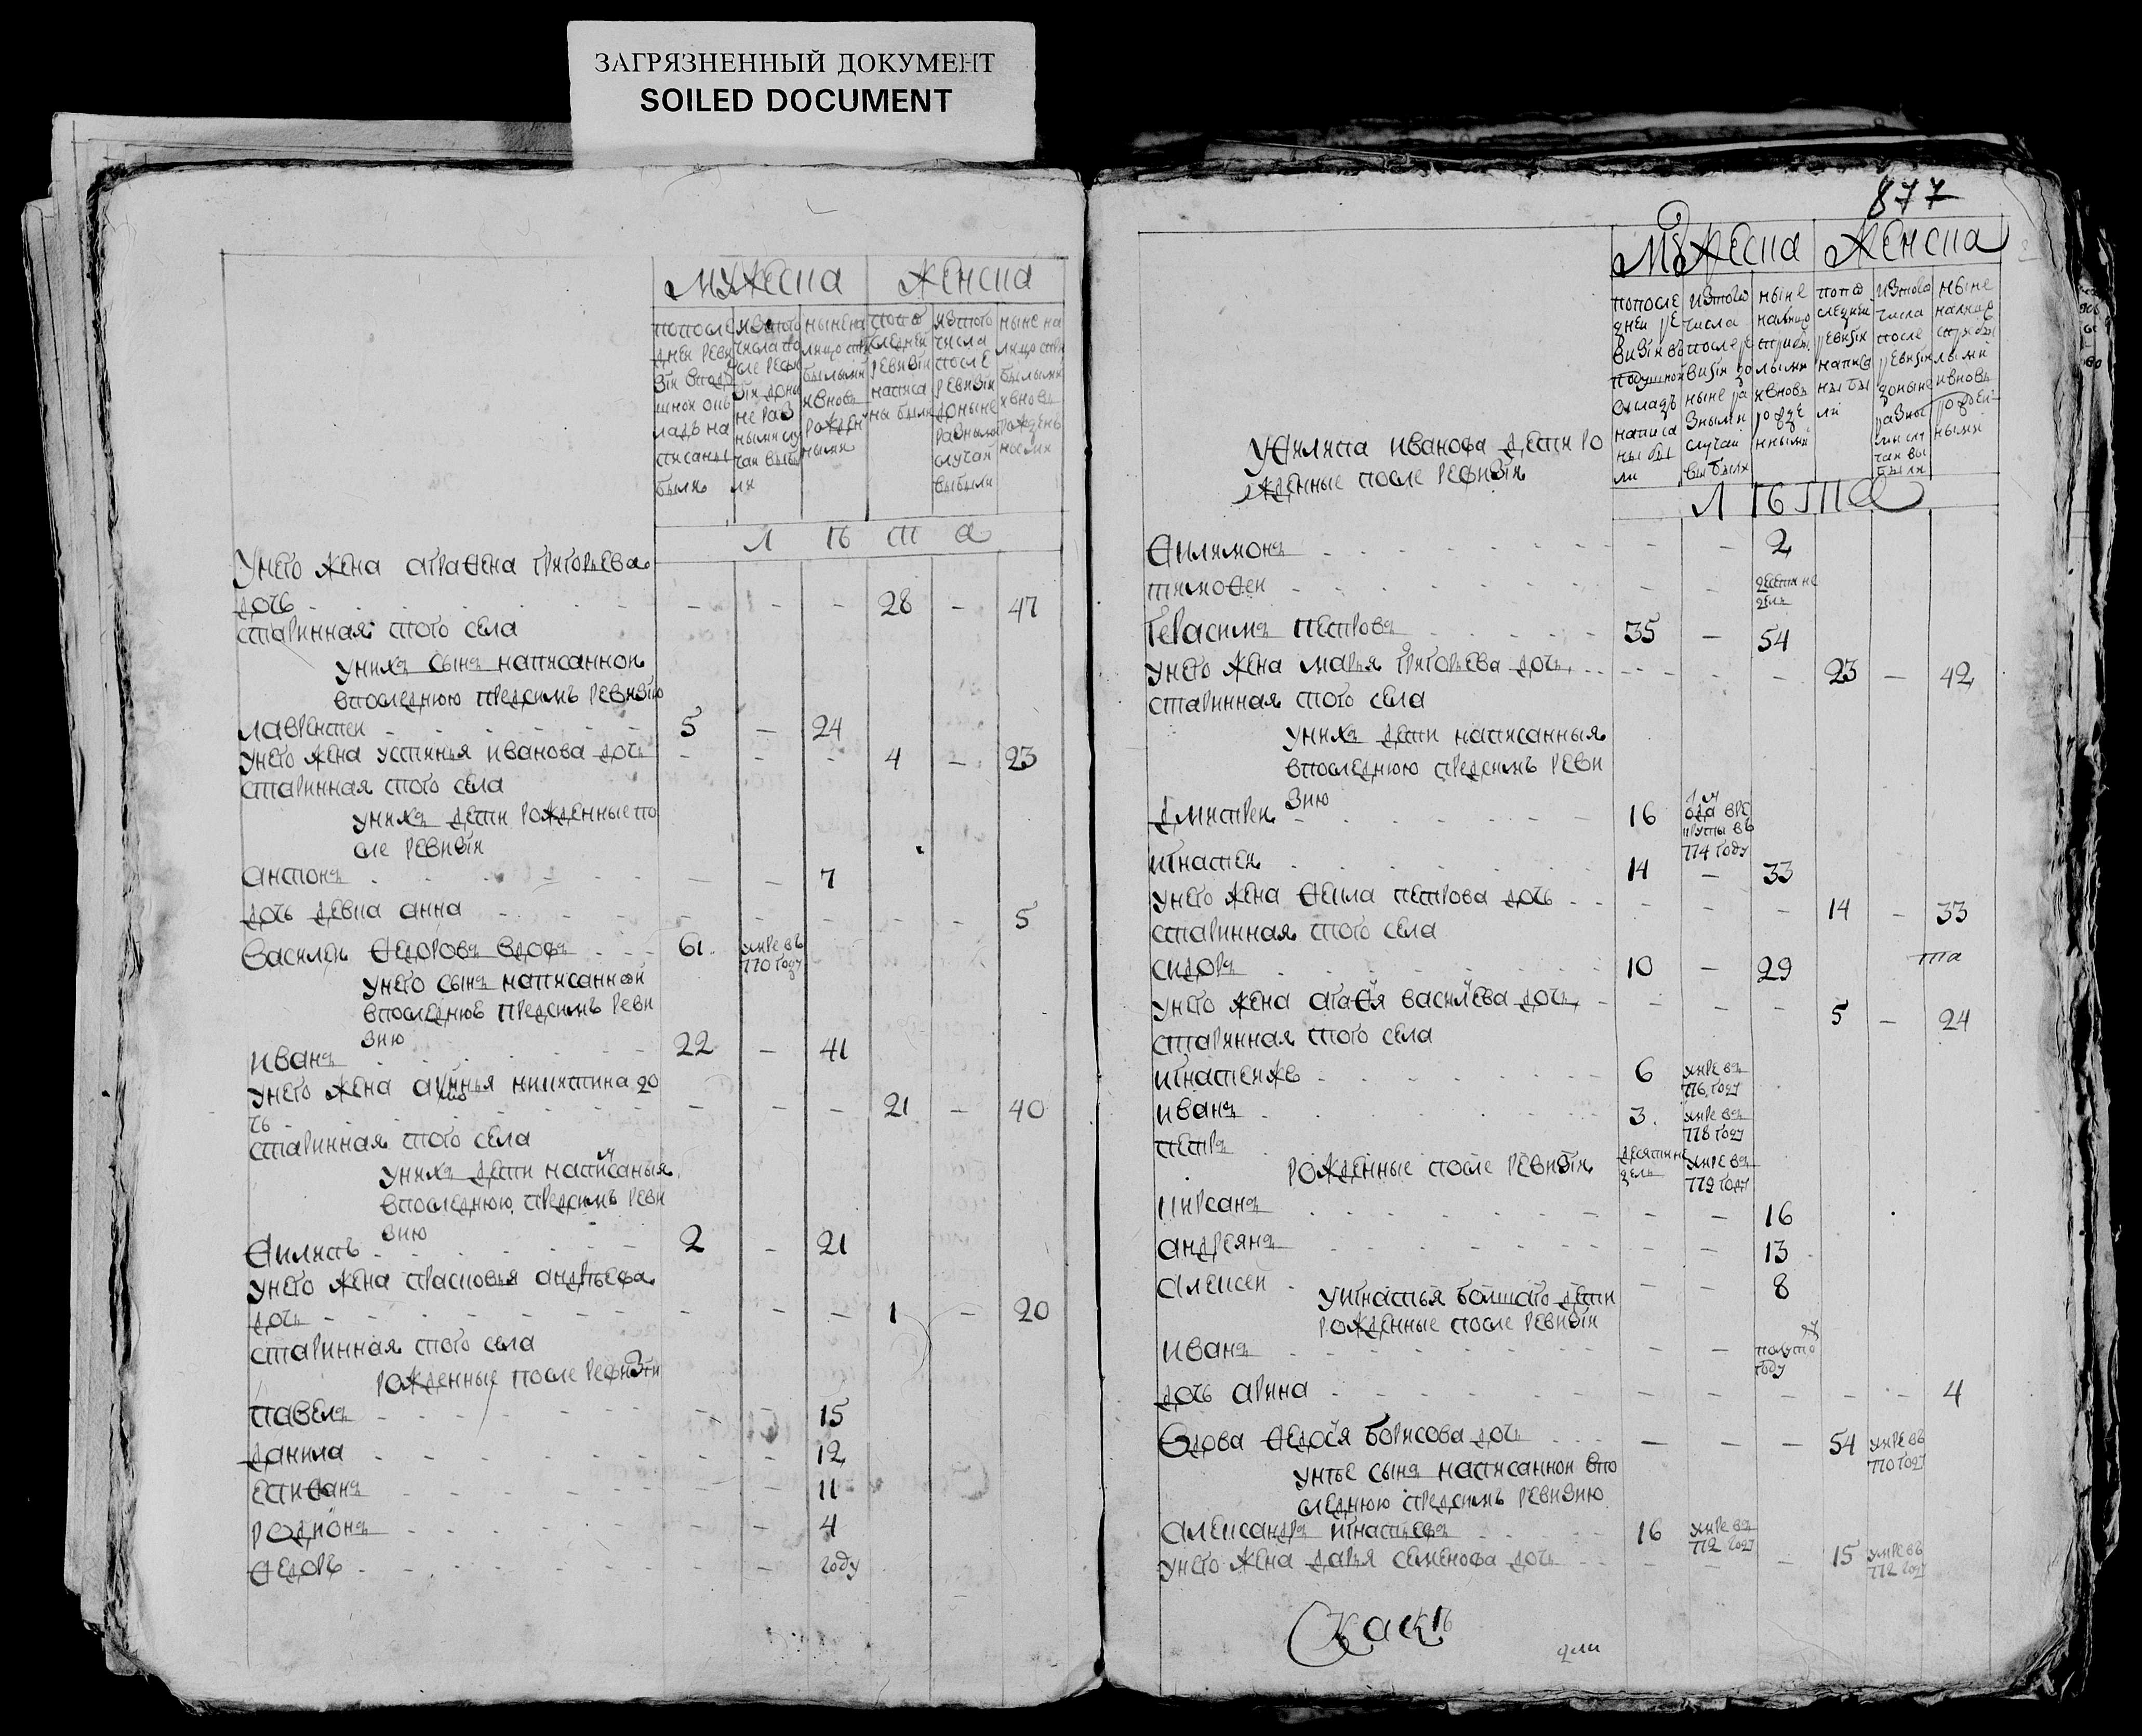 ЗАГРЯЗНЕННЫЙ ДОКУМЕНТ
SOILED DOCUMENT
мужеска женска
попосле днеи реви зіи вподу шнои окъ ладъ на писаны были
изтого числа по сле реви зіи доны не раз ными слу чаи выбы ли
ныне на лицо стои былыми ивновь рожден ными
попо следнеи ревизіи написа ны были
изтого числа после ревизіи доныне разными случаи выбыли
ныне на лицо
л ѣ т а
Унего жена аграѳена григорьева
дочь - - - 28 - 47
старинная того села
униха сынъ написаннои
впоследнюю предсимъ ревизию
лаврентеи 5 - 24
унего жена устинья иванова дочь - - - 4 - 23
старинная того села
унихъ дети рожденные по
сле ревизіи
антонъ - - 7
дочь девка анна - - - - - 5
василеи ѳедоровъ вдовъ 61 умре въ 770 году
унего сынъ написаннои
впоследнюе предсимъ реви
зию
иванъ 22 - 41
унего жена никитина до
чь - - - 21 - 40
старинная того села
унихъ дети написаныя
впоследнюю предсимъ реви
зию
ѳилипъ 2 - 21
унего жена прасковья андрѣева
дочь - - - 1 - 20
старинная того села
рожденные после ревизіи
павелъ - - 15
данила - - 12
епиѳанъ - - 11
родионъ - - 4
ѳедоръ - - году
877
мужеска женска
попосле днеи ре визіи въ подушнои окладъ написа ны бы ли
изтого числа после ре визіи до ныне ра зными случаи выбыли
ныне налицо ивновь рожде нными
попо следнеи ревизіи написа ны бы ли
изтого числа после ревизіи доныне разны ми слу чаи вы были
ныне налицо ивновь рожден ными
л ѣ т а
Уѳилипа иванова дети ро
жденные после ревизіи
ѳилимонъ - - 2
тимоѳеи - - десети не дель
герасимъ петровъ 35 - 54
унего жена марья григорьева дочь - - - 23 - 42
старинная того села
унихъ дети написанныя
впоследнюю предсимъ реви
зию
дмитреи 16 отда врекруты въ 774 году
игнатеи 14 - 33
унего жена ѳекла петрова дочь - - - 14 - 33
старинная того села
сидоръ 10 - 29
унего жена агаѳя василева дочь - - - 5 - 24
старинная того села
игнатеижъ 6 умре въ 776 году
иванъ 3 умре въ 778 году
петръ десяти не дель умре въ 772 году
рожденные после ревизіи
кирсанъ - - 16
андреянъ - - 13
алексеи - - 8
уигнатья болшаго дети
рожденные после ревизіи
иванъ - - полуто году
дочь арина - - - - - 4
Вдова ѳедося борисова дочь - - - 54 умре въ 770 году
унѣе сынъ написаннои впо
следнюю предсимъ ревизию
александръ игнатьевъ 16 умре въ 772 году
унего жена дарья семенова дочь - - - 15 умре въ 772 году
Къ